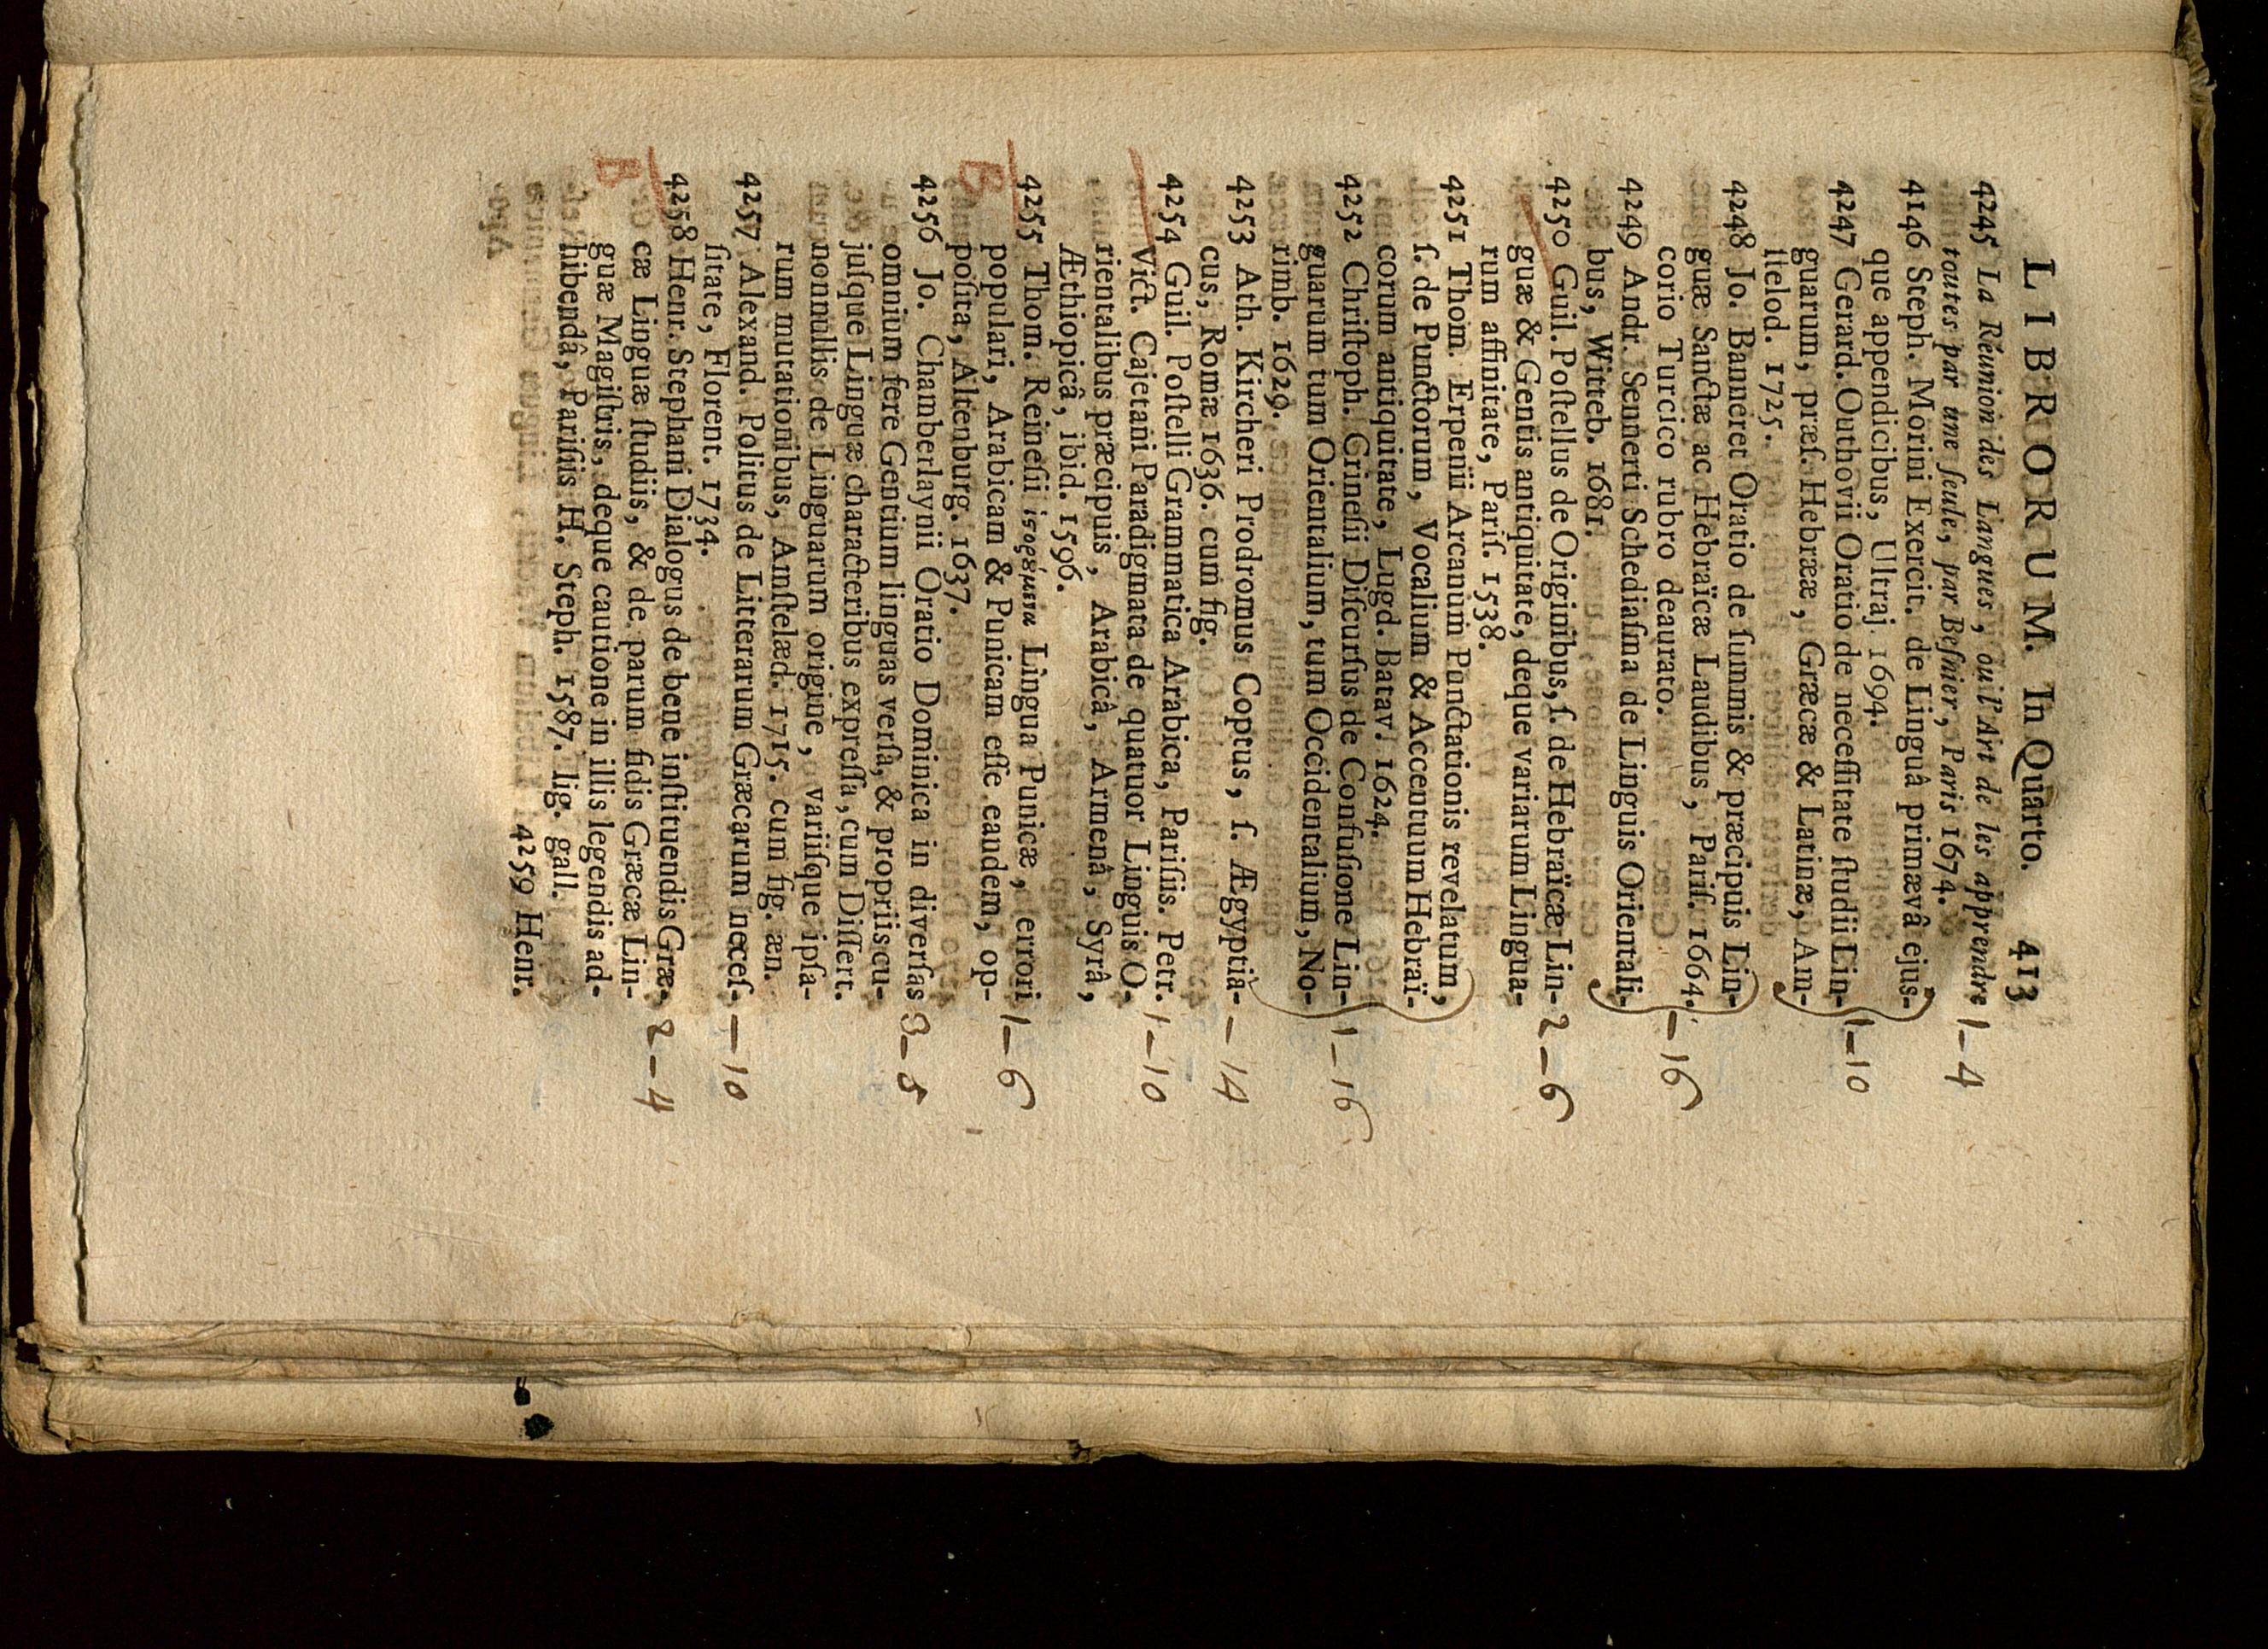 LIBRORUM. In Quarto. 413
4245 La Réunion des Langues, ou l'Art de les apprendre 1–4
toutes par une ſeule, par Beſnier, Paris 1674.
4146 Steph. Morini Exercit. de Linguâ primævâ ejus-
que appendicibus, Ultraj. 1694.
4247 Gerard. Outhovii Oratio de neceſſitate ſtudii Lin- 1–10
guarum, præſ. Hebrææ, Græcæ & Latinæ, Am-
ſtelod. 1725.
4248 Jo. Banneret Oratio de ſummis & præcipuis Lin-
guæ Sanctæ ac Hebraïcæ Laudibus, Pariſ. 1664. –16
corio Turcico rubro deaurato.
4249 Andr. Sennerti Schediaſma de Linguis Orientali-
bus, Witteb. 1681.
4250 Guil. Poſtellus de Originibus, ſ. de Hebraïcæ Lin- 2–6
guæ & Gentis antiquitate, deque variarum Lingua-
rum affinitate, Pariſ. 1538.
4251 Thom. Erpenii Arcanum Punctationis revelatum,
ſ. de Punctorum, Vocalium & Accentuum Hebraï-
corum antiquitate, Lugd. Batav. 1624.
4252 Chriſtoph. Crineſii Diſcurſus de Confuſione Lin- 1–16
guarum tum Orientalium, tum Occidentalium, No-
rimb. 1629.
4253 Ath. Kircheri Prodromus Coptus, ſ. Ægyptia- –14
cus, Romæ 1636. cum fig.
4254 Guil. Poſtelli Grammatica Arabica, Pariſiis. Petr. 1–10
Vict. Cajetani Paradigmata de quatuor Linguis O-
rientalibus præcipuis, Arabicâ, Armenâ, Syrâ,
Æthiopicâ, ibid. 1596.
4255 Thom. Reineſii ἱϛορȣ́μενα Lingua Punicæ, errori 1–6
populari, Arabicam & Punicam eſſe eandem, op-
B poſita, Altenburg. 1637.
4256 Jo. Chamberlaynii Oratio Dominica in diverſas 3–5
omnium fere Gentium linguas verſa, & propriis cu-
juſque Linguæ characteribus expreſſa, cum Diſſert.
nonnullis de Linguarum origine, variiſque ipſa-
rum mutationibus, Amſtelæd. 1715. cum fig. æn.
4257 Alexand. Politus de Litterarum Græcarum neceſ- –10
ſitate, Florent. 1734.
4258 Henr. Stephani Dialogus de bene inſtituendis Græ- 2–4
cæ Linguæ ſtudiis, & de parum fidis Græcæ Lin-
B guæ Magiſtris, deque cautione in illis legendis ad-
hibendâ, Pariſiis H. Steph. 1587. lig. gall.
4259 Henr.